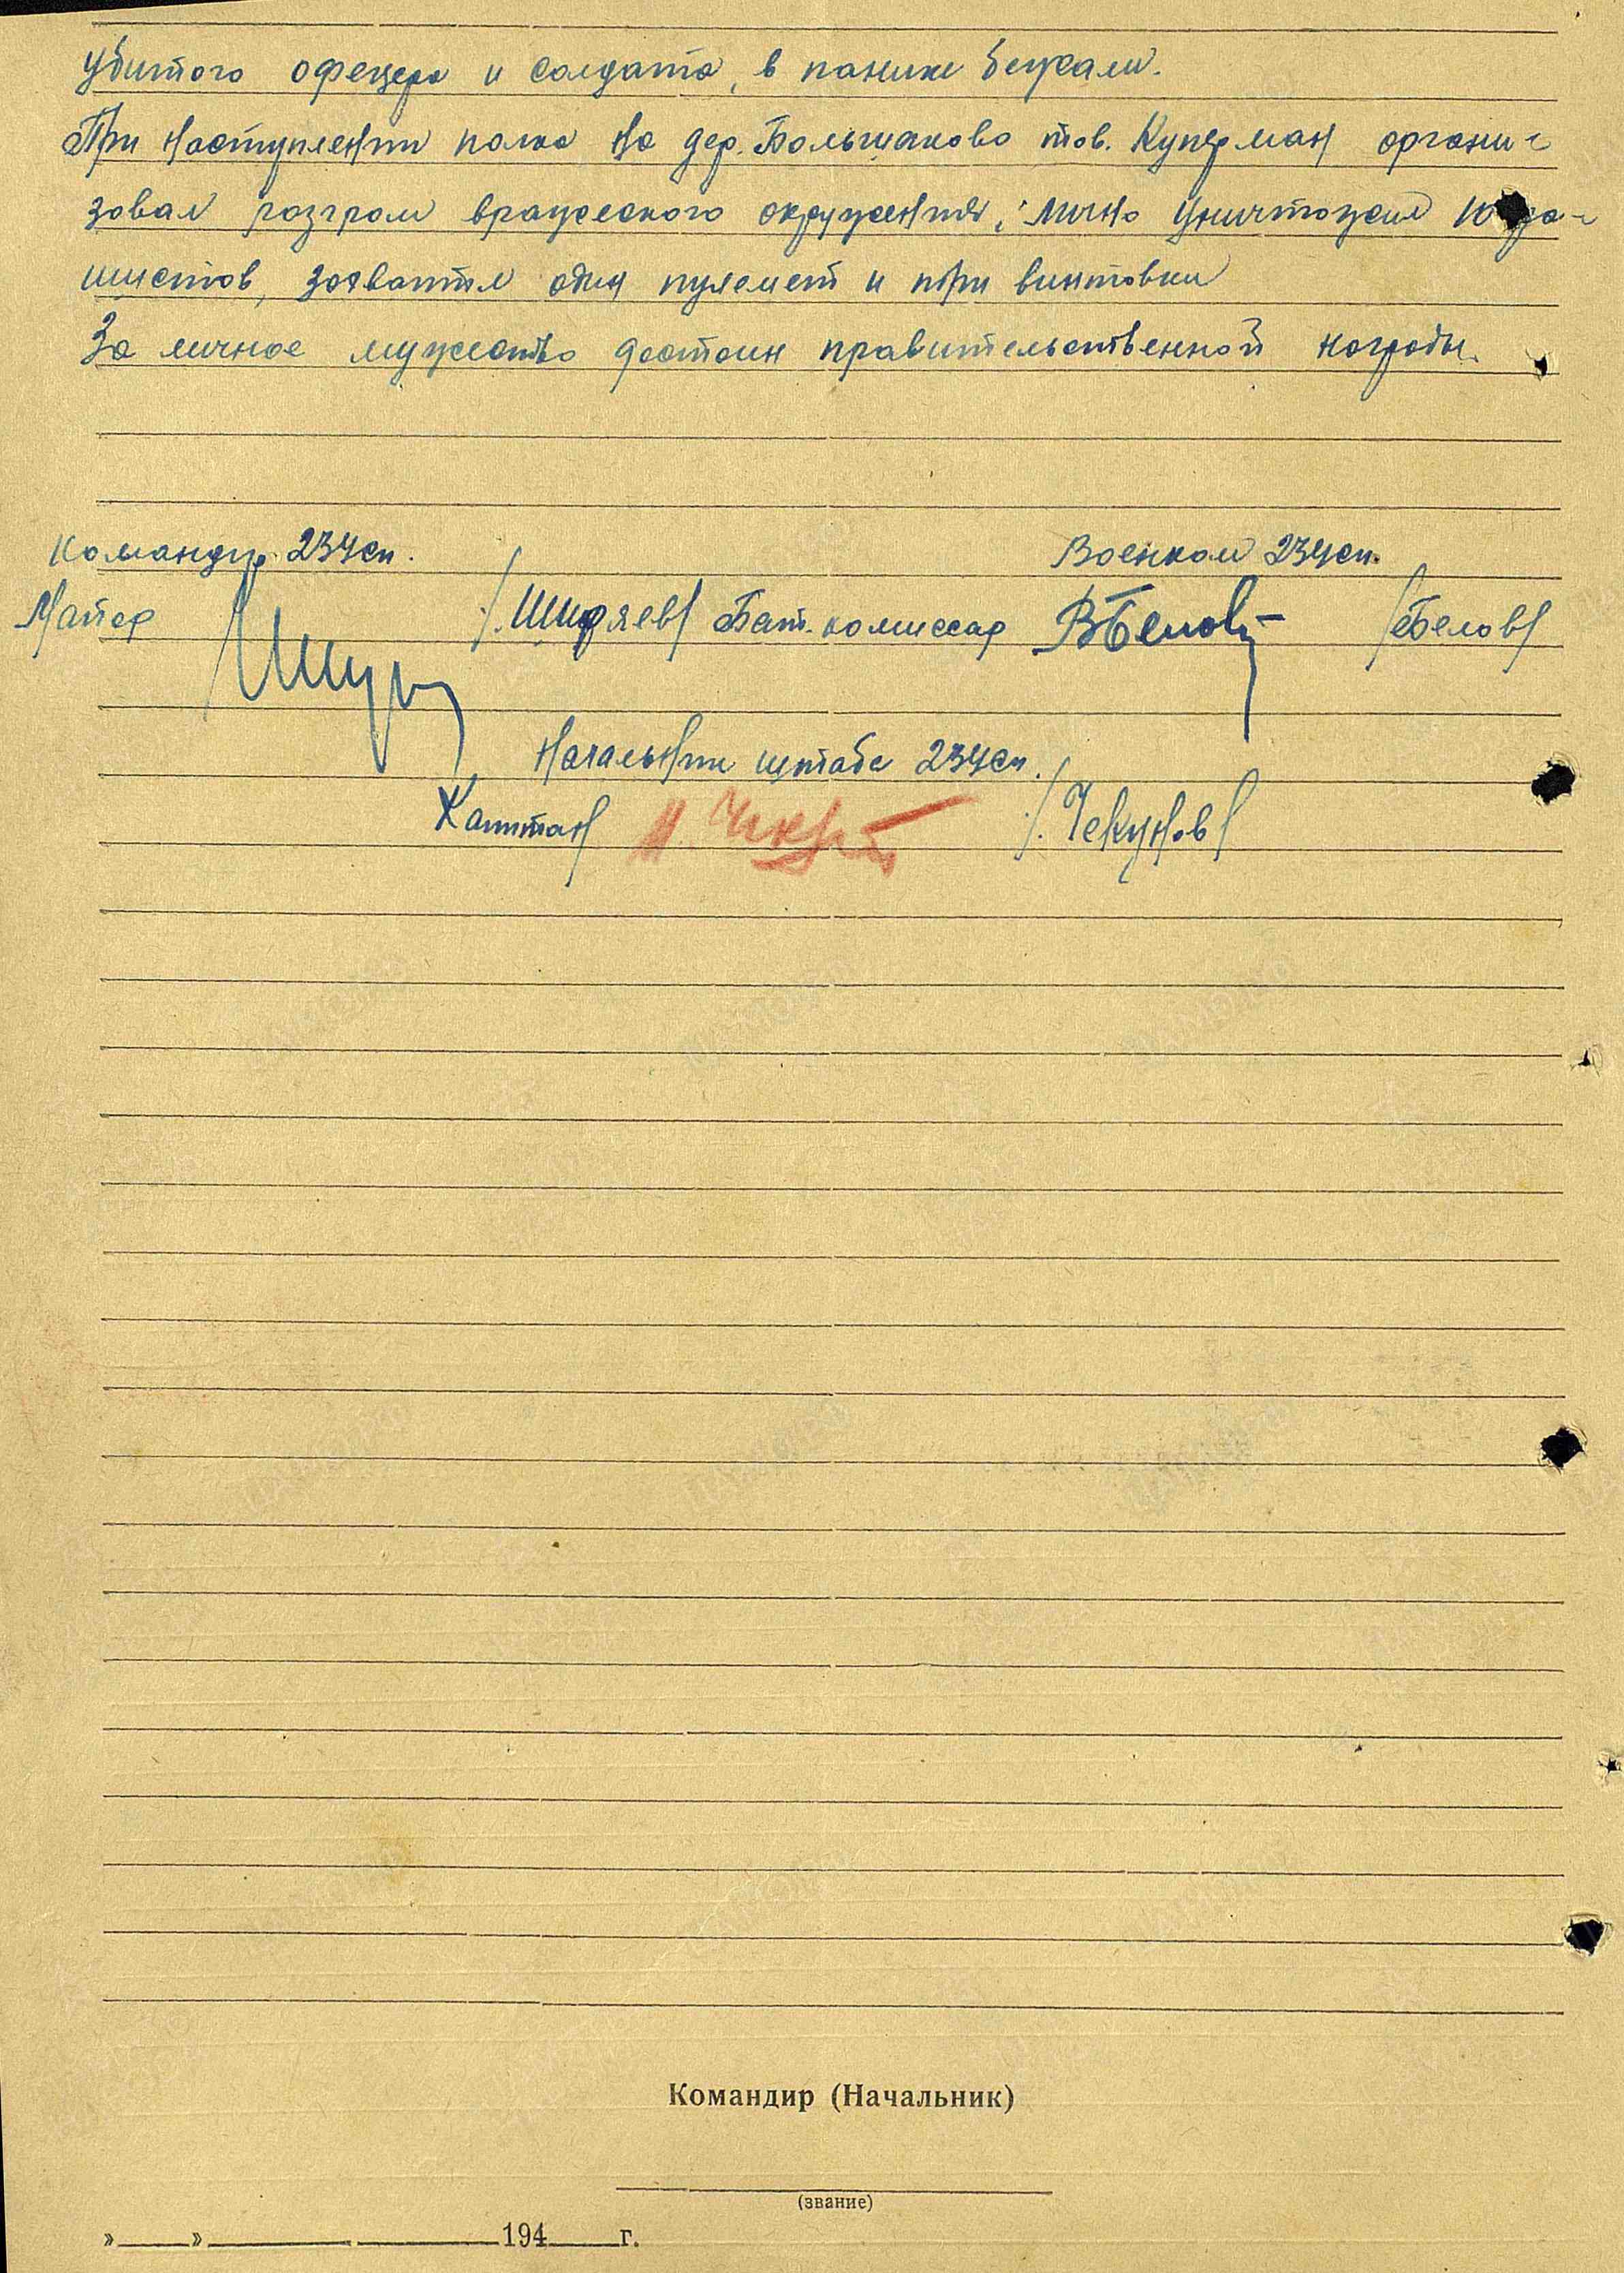 убитого офецера и солдата, в панике бежали.
При наступлении полка на дер. Большаково тов. Куперман органи-
зовал разгром вражеского окружения, лично уничтожил 10 фа-
шистов, захватил один пулемет и три винтовки
За личное мужество достоин правительственной награды.
Командир 234сп. Военком 234сп.
Майор /Ширяев/ Бат. комиссар ВБелов /Белов/
Начальник штаба 234сп.
Капитан /Чекунов/
Командир (Начальник)
(звание)
» » 194 г.